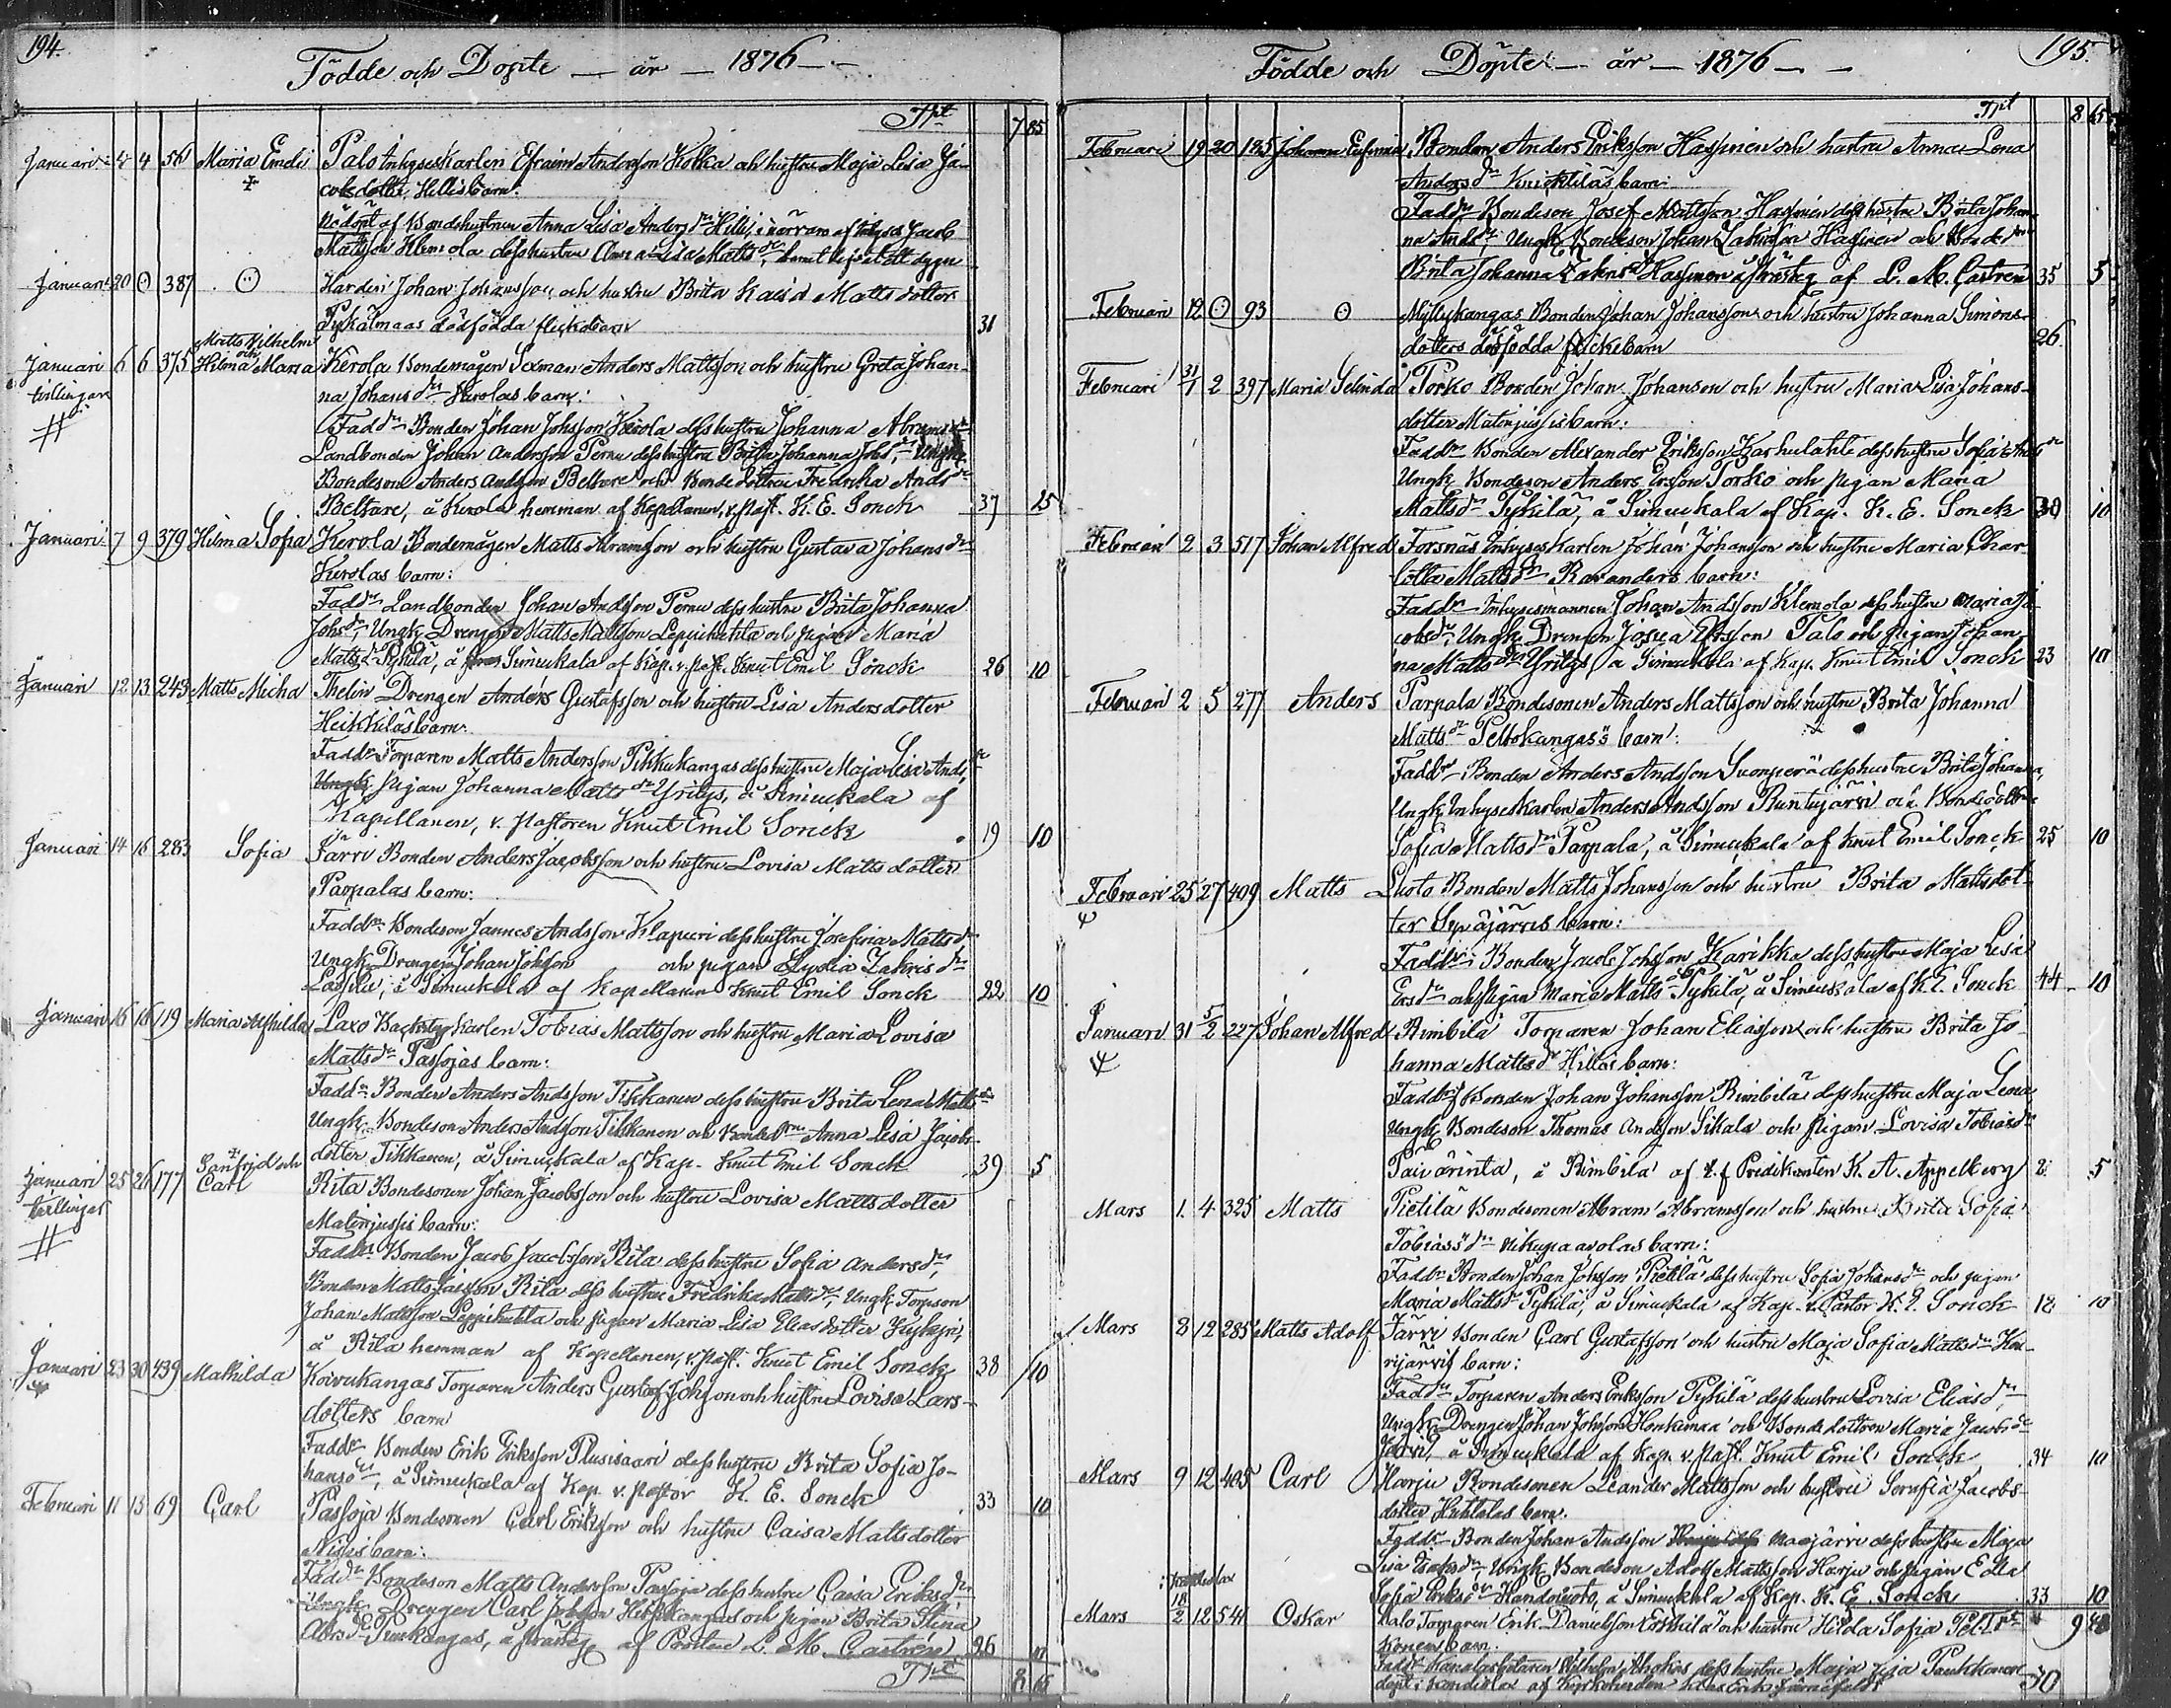 194.
Födde och Döpte — år — 1876 —
Tpt 7 85
Januari 4 4 56 Maria Emeli Palo Inhyseskarlen Efraim Andersson Kokka och hustru Maja Lisa Ja-
cobsdotter Hillis barn:
Nöddöpt af Bondehustrun Anna Lisa Andersdr Hilli, i närvaro af Jacob
Mattsson Klemola dess hustru Anna Lisa Mattsdr,
Januari 20 0 387 0 Johan Johansson och hustru Brita Kaisa Mattsdotter
Pykälmaas dödfödda flickebarn 31
Matts Vilhelm
och
Januari 6 6 375 Hilma Maria Kerola Bondemågen Sexman Anders Mattsson och hustru Greta Johan-
tvillingar na Johansdr Kerolas barn:
Faddr Bonden Johan Johsson Kerola dess hustru Johanna Abramsdr
Landbonden Johan Andersson Pernu dess hustru Brita Johanna Johsdr, Ungk.
Bondeson Anders Andsson Beltare och Bondedottren Fredrika Andsdr
Beltare, å Kerola hemman af Kapellanen, v. past. K. E. Sonck 37 25
Januari 7 9 379 Hilma Sofia Kerola Bondemågen Matts Abramsson och hustru Gustava Johansdr
Kerolas barn:
Faddr Landbonden Johan Andsson Pernu dess hustru Brita Johanna
Johsdr, Ungk. Drengen Matts Mattsson Leppihuhta och pigan Maria
Mattsdr Pykilä, å Simuckala af Kap. v. past. Knut Emil Sonck 26 10
Januari 12 13 243 Matts Micha Thelin Drengen Anders Gustafsson och hustru Lisa Andersdotter
Heikkiläs barn:
Faddr Torparen Matts Andersson Pikkukangas dess hustru Maja Lisa Andsdr
Ungk. pigan Johanna Mattsdr Yritys, å Simuckala af
Kapellanen, v. pastoren Knut Emil Sonck 19 10
Januari 14 16 283 Sofia Järvi Bonden Anders Jacobsson och hustru Lovisa Mattsdotter
Parpalas barn:
Faddr Bondeson Jannes Andsson Klapuri dess hustru Josefina Mattsdr
Ungk. Drengen Johan Johsson och pigan Lydia Zakrisdr
Lassila, å Simuckala af Kapellanen Knut Emil Sonck 22 10
Januari 16 16 119 Maria Alfhilda Laxo Backstugkarlen Tobias Mattsson och hustru Maria Lovisa
Mattsdr Passojas barn:
Faddr Bonden Anders Andsson Tikkanen dess hustru Brita Lena Mattsdr
Ungk. Bondeson Anders Andsson Tikkanen och Bondedtrn Anna Lisa Jacobs-
dotter Tikkanen, å Simuckala af Kap. Knut Emil Sonck 39 5
Januari 25 26 177 Sanfrid och Carl Rita Bondesonen Johan Jacobsson och hustru Lovisa Mattsdotter
tvillingar Matinjussis barn:
Faddr Bonden Jacob Jacobsson Rita dess hustru Sofia Andersdr,
Bonden Matts Jacsson Rita dess hustru Fredrika Mattsdr, Ungk. Torpson
Johan Mattsson Leppihuhta och pigan Maria Lisa Eliasdotter Kykyri,
å Rita hemman af Kapellanen, v. past. Knut Emil Sonck 38 10
Januari 23 30 439 Mathilda Koivukangas Torparen Anders Gustaf Johsson och hustru Lovisa Lars-
dotters barn
Faddr Bonden Erik Eriksson Plusisaari dess hustru Brita Sofia Jo-
hansdr, å Simuckala af Kap. v. pastor K. E. Sonck 33 10
Februari 11 13 69 Carl Passoja Bondesonen Carl Eriksson och hustru Caisa Mattsdotter
Nissis barn:
Faddr Bondeson Matts Andersson Passoja dess hustru Caisa Eriksdr
Ungk. Drengen Carl Johsson Heikkangas och pigan Brita Stina
Abrsdr Purkangas, å prästg af Pastor L. M. Castrén 26
Tpt 8 65
195.
Födde och Döpte — år — 1876 —
Tpt 8 65
Februari 19 20 125 Johanna Eufemia Bonden Anders Eriksson Hassinen och hustru Anna Lena
Andersdr Knicktiläs barn:
Faddr Bondeson Josef Mattsson Hassinen dess hustru Brita Johan-
na Andsdr Ungk. Bondeson Johan Zakrisson Hassinen och Bondedtrn
Brita Johanna Zakrisdr Hassinen å prästg. af L. M. Castrén 35 5
Februari 12 0 93 0 Myllykangas Bonden Johan Johansson och hustru Johanna Simons-
dotters dödfödda flickebarn 26
Februari 31/1 2 397 Maria Selinda Porko Bonden Johan Johansson och hustru Maria Lisa Johans-
dotter Matinjussis barn:
Faddr Bonden Alexander Eriksson Karhulahti dess hustru Sofia Andsdr
Ungk. Bondeson Anders Ersson Porko och pigan Maria
Mattsdr Pykilä, å Simuckala af Kap. K. E. Sonck 30 10
Februari 2 3 517 Johan Alfred Forsnäs Inhyseskarlen Johan Johansson och hustru Maria Char-
lotta Mattsdr Ravanders barn:
Faddr Inhysesmannen Johan Andsson Klemola dess hustru Maria Ja-
cobsdr, Ungk. Drengen Josua Ersson Palo och pigan Johan-
na Mattsdtr Yritys, å Simuckala af Kap. Knut Emil Sonck 23 10
Februari 2 5 277 Anders Parpala Bondesonen Anders Mattsson och hustru Brita Johanna
Mattsdr Peltokangas's barn:
Faddr Bonden Anders Andsson Suonperä dess hustru Brita Johanna,
Ungk. Inhyseskarlen Anders Andsson Runtujärvi och Bondedottren
Sofia Mattsdr Parpala, å Simuckala af Knut Emil Sonck 25 10
Februari 25 27 409 Matts Luoto Bonden Matts Johansson och hustru Brita Mattsdot-
ter Syväjärvis barn:
Faddr: Bonden Jacob Johsson Karikka dess hustru Maja Lisa
Ersdr och pigan Maria Mattsdr Pykilä, å Simuckala af K. E. Sonck 44 10
Januari 31 5/2 227 Johan Alfred Rimbilä Torparen Johan Eliasson och hustru Brita Jo-
hanna Mattsdr Hillis barn:
Faddr Bonden Johan Johansson Rimbilä dess hustru Maja Lena
Ungk. Bondeson Thomas Andsson Sihala och pigan Lovisa Tobiasdr
Päivärinta, å Rimbilä af v. f Predikanten K. A. Appelberg 2 5
Mars 1 4 325 Matts Pietilä Bondesonen Abram Abramsson och hustru Brita Sofia
Tobiassdr barn:
Faddr Bonden Johan Johsson Pietilä dess hustru Sofia Johansdr och pigan
Maria Mattsdr Pykilä, å Simuckala af Kap. v. Pastor K. E. Sonck 12 10
Mars 8 12 285 Matts Adolf Järvi Bonden Carl Gustafsson och hustru Maja Sofia Mattsdr Kou-
rijärvis barn:
Faddr Torparen Anders Eriksson Pykilä dess hustru Lovisa Eliasdr,
Ungk. Drengen Johan Johsson Honkimaa och Bondedottren Maria Jacobsdr
Järvi, å Simuckala af Kap. v. past. Knut Emil Sonck 34 10
Mars 9 12 405 Carl Harju Bondesonen Leander Mattsson och hustru Serafia Jacobs-
dotter Huhtalas barn:
Faddr Bonden Johan Andsson Vasojärvi dess hustru Maja
Lisa Isaksdr Ungk. Bondeson Adolf Mattsson Harju och pigan Edla
Sofia Eriksdr Handoluoto, å Simuckala af Kap. K. E. Sonck 33 10
Mars 18/2 12 541 Oskar Kalo Torparen Erik Danielsson Erkkilä och hustru Hilda Sofia Pelt-
Tpt 9 48
konen barn:
Faddr Vilhelm Ahokas dess hustru Maja Lisa Paukkonen
döpt i Kondivlax af Kyrkoherden Klas Erik Järnefelt 30